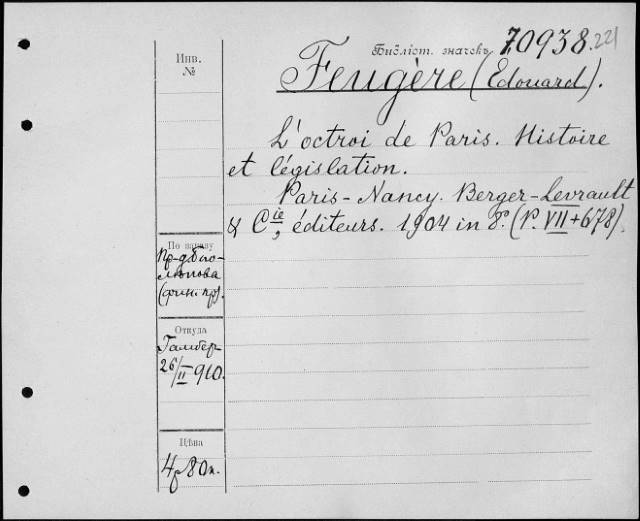 Библіот. значекъ 70938. 221
Инв.
№
Feugère (Edouard).
L'octroi de Paris. Histoire
et législation.
Paris-Nancy. Berger-Levrault
& Cie, éditeurs. 1904 in 8°. (P. VII+678).
По заказу
(фин. пр).
Откуда
26/II 910.
Цѣна
4р 80к.